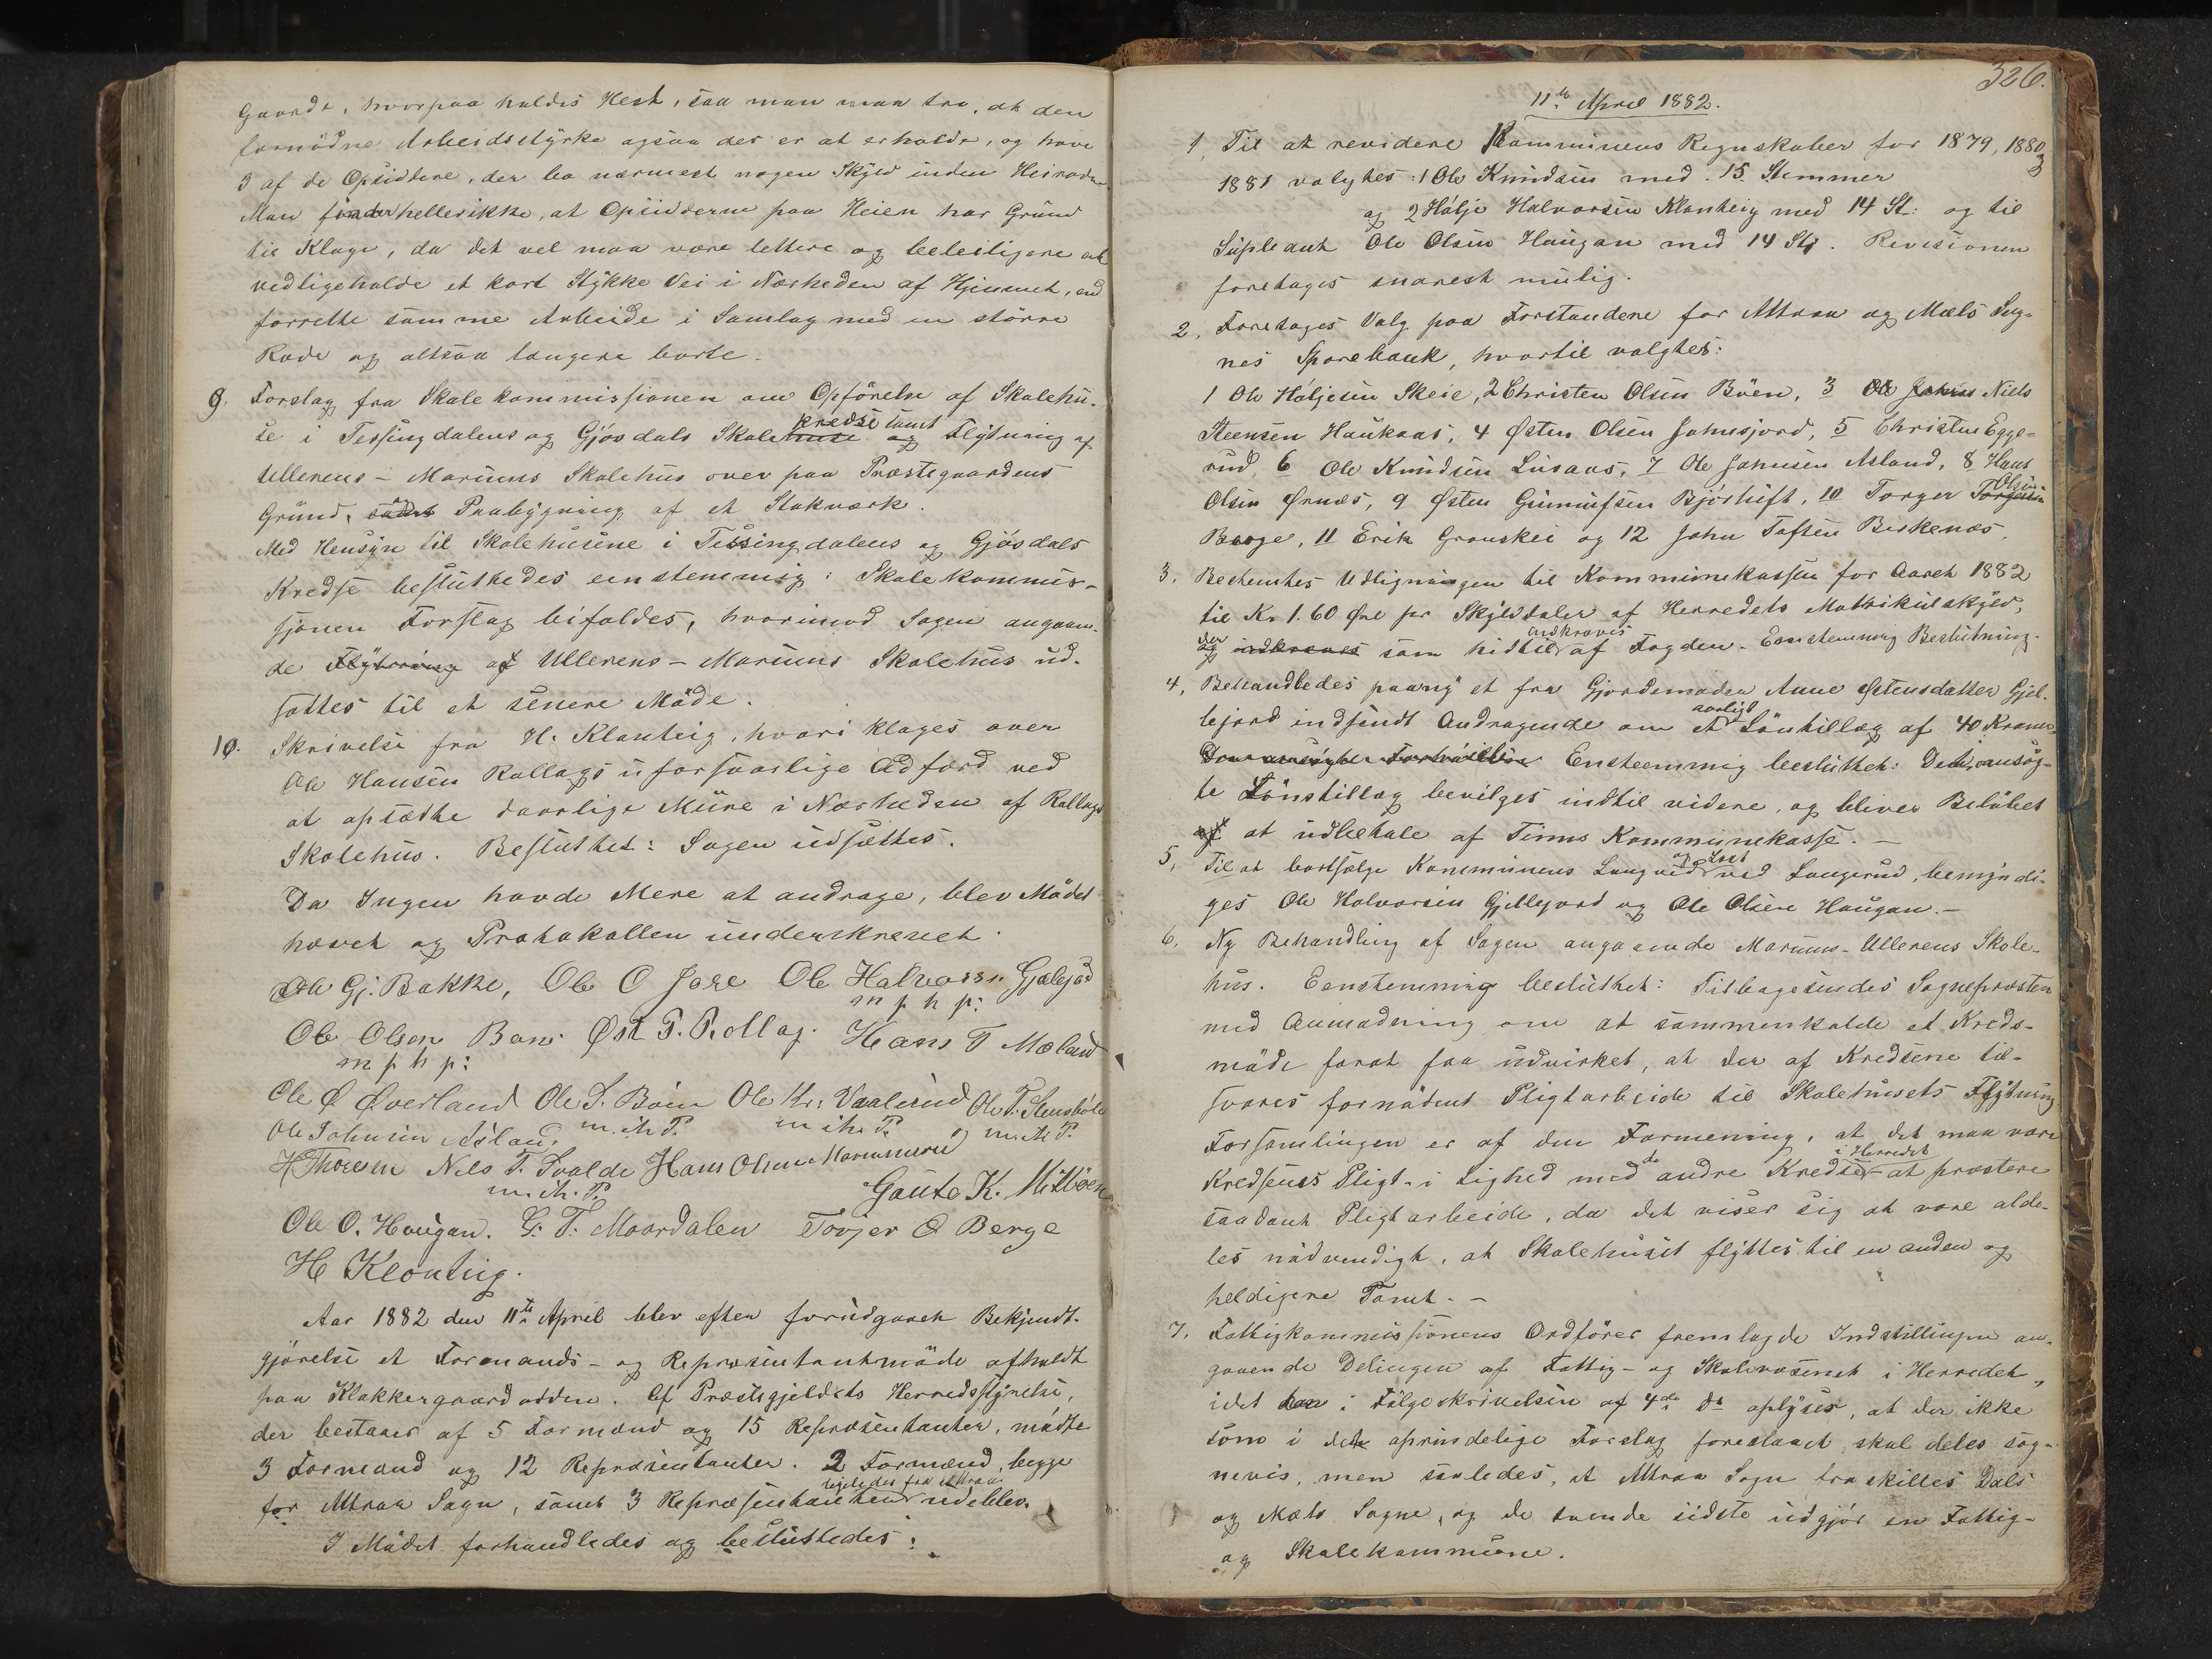 Gaarde, hvorpaa holdes Hest, saa man maa tro, at den
fornödne Arbeidsstyrke ogsaa der er at erholde, og have
3 af de Opsiddere, der bo nærmest nogen Skyld inden Heiroden.
Man finder heller ikke, at Opsidderne paa Heien har Grund
til Klage, da det vel maa være lettere og beleiligere at
vedligeholde et kort Stykke Vei i Nærheden af Hjemmet, end
forrette samme Arbeide i Samlag med en större
Rode og altsaa længere borte.
9. Forslag fra Skolekommissionen om Opförelse af Skolehu-
se i Tessungdalens og Gjösdals Skolekredse samt Flytning af
Ullerens - Marums Skolehus over paa Præstegaardens
Grund, og Paabygning af et Stokværk.
Med Hensyn til Skolehusene i Tessingdalens og Gjösdals
Kredse besluttedes eenstemmig: Skolekommis-
sjonen Forslag bifaldes, hvorimod Sagen angaaen-
de Flytning af Ullerens - Marums Skolehus ud-
sattes til et senere Möde.
10. Skrivelse fra H. Klonteig, hvori klages over
Ole Hansen Rollags uforsvarlige Adfærd ved
at opsætte daarlige Mure i Nærheden af Rollags
Skolehus. Besluttet: Sagen udsættes.
Da Ingen havde Mere at andrage, blev Mödet
hævet og Protokollen underskrevet.
Ole Gj. Bakke, Ole O Jore Ole Halvorsen Gjælejord
m p h p:
Ole Olsen Bøn. Øst T. Rollag. Hans T Mæland
m p h p:
Ole Ø Øverland Ole S. Böen Ole Kr: Vaalerud Ole T. Stensböle
Ole Johnsen Asland m. ih P. m ih. P. m. ih P.
H Thoresen Nels T. Svalde Hans Olsen Marumsrud
m. ih. P. Gaute K. Mitböen
Ole O. Hougan. G. T. Maardalen Torjer O Berge
H Klonteig.
Aar 1882 den 11te April blev efter forudgaaet Bekjendt-
gjörelse et Formands- og Repræsentantmöde afholdt
paa Klokkergaardodden. Af Præstegjeldets Herredsstyrelse,
der bestaaer af 5 Formænd og 15 Repræsentanter, mödte
3 Formænd og 12 Repræsentanter. 2 Formænd, begge
for Attraa Sogn, samt 3 Repræsentanter ligeledes fra Attraa udeblev.
I Mödet forhandledes og besluttedes:
326.
11te April 1882.
1, Til at revidere Kommunens Regnskaber for 1879, 1880
1881 valgtes: 1 Ole Knudsen med 15 Stemmer
og 2 Hölje Halvorsen Klonteig med 14 St: og til
Supleant Ole Olsen Haugan med 14 St. Revisionen
foretages snarest mulig.
2, Foretages Valg paa Forstandere for Attraa og Mæls Sog-
nes Sparebank, hvortil valgtes:
1 Ole Höljesen Skeie, 2 Christen Olsen Böen, 3 Niels
Steensen Haukaas, 4 Østen Olsen Johnsjord, 5 Christen Egge-
rud, 6 Ole Knudsen Lusaas, 7 Ole Johnsen Asland, 8 Hans
Olsen Ørnæs, 9 Østen Gunnufsen Bjørtuft, 10 Torger Olsen
Berge, 11 Erik Gronskei og 12 John Tofsen Berkenæs.
3, Bestemtes Udligningen til Kommunekassen for Aaret 1882
til Kr 1.60 Øre pr Skylddaler af Herredets Matrikulskyld,
der som hidtil indkræves af Fogden. Eenstemmig Beslutning.
4, Behandledes paany et fra Gjordemoder Anne Østensdatter Gjel-
lejord indsendt Andragende om et aarligt Löntillæg af 40 Kroner.
Ensteemmig besluttet: Det ansög-
te Lönstillæg bevilges indtil videre, og bliver Belöbet
at udbetale af Tinns Kommunekasse. -
5, Til at bortsælge Kommunens Langved og Last ved Langerud, bemyndi-
ges Ole Halvorsen Gjellejord og Ole Olsen Haugan. -
6, Ny Behandling af Sagen angaaende Marums-Ullerens Skole-
hus. Eenstemmig besluttet: Tilbagesendes Sognepræsten
med Anmodning om at sammenkalde et Kreds-
möde forat faa udvirket, at der af Kredsene til-
svares fornödent Pligtarbeide til Skolehusets Flytning
Forsamlingen er af den Formening, at det maa være
Kredsens Pligt - i Lighed med de andre Kredse i Herredet - at præstere
saadant Pligtarbeide, da det viser sig at være alde-
les nödvendigt, at Skolehuset flyttes til en anden og
heldigere Tomt. -
7, Fattigkommissionens Ordförer fremlagde Indstillingen an-
gaaende Delingen af Fattig- og Skolevæsenet i Herredet,
idet han i Fölgeskrivelsen af 4de ds oplyser, at der ikke
som i det oprindelige Forslag foreslaaet skal deles sog-
nevis, men saaledes, at Attraa Sogn fraskilles Dals
og Mæls Sogne, og de tvende sidste udgjör en Fattig-
og Skolekommune.